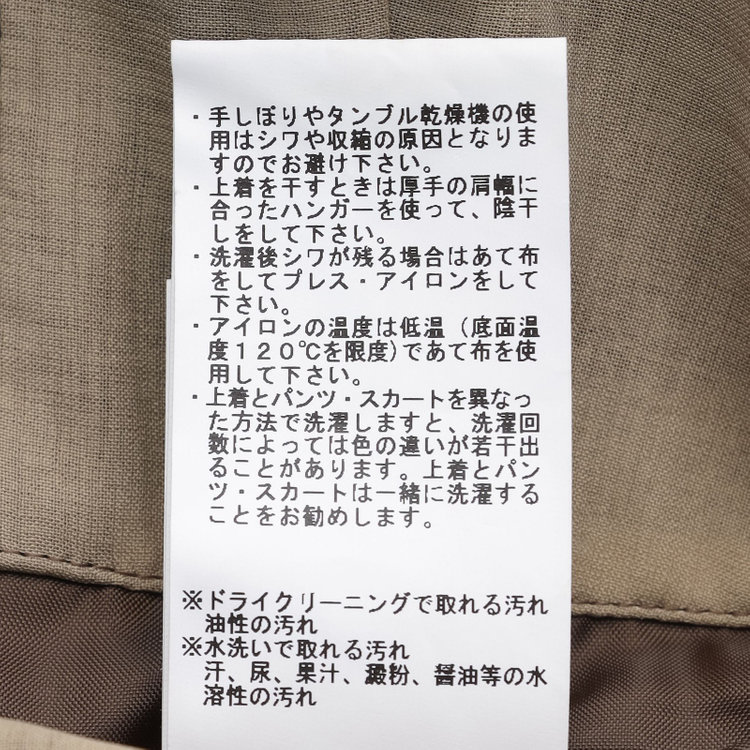 ・手しぼりやタンブル乾燥機の使
用はシワや収縮の原因となりま
すのでお避け下さい。
・上着を干すときは厚手の肩幅に
合ったハンガーを使って、陰干
しをして下さい。
・洗濯後シワが残る場合はあて布
をしてプレス・アイロンをして
下さい。
・アイロンの温度は低温（底面温
度１２０℃を限度）であて布を使
用して下さい。
・上着とパンツ・スカートを異なっ
た方法で洗濯しますと、洗濯回
数によっては色の違いが若干出
ることがあります。上着とパン
ツ・スカートは一緒に洗濯する
ことをお勧めします。
※ドライクリーニングで取れる汚れ
油性の汚れ
※水洗いで取れる汚れ
汗、尿、果汁、澱粉、醤油等の水
溶性の汚れ